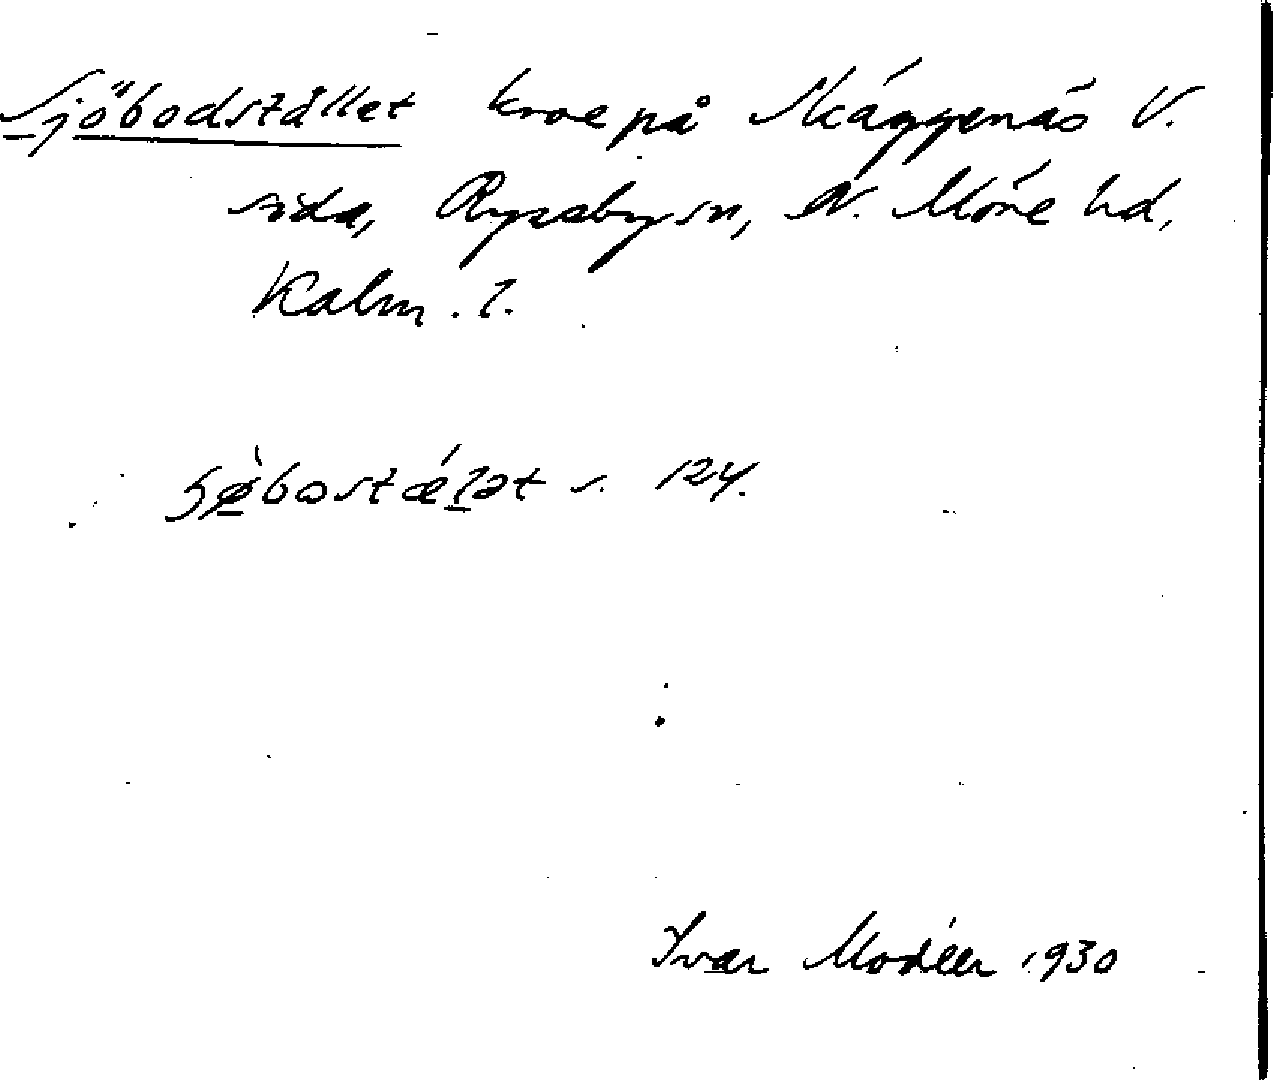 Sjöbodstället kroe på Skäggenäs V.
sida, Ryssby sn, N. Möre hd,
Kalm. l.
s. 124.
Ivar Modéer 1930